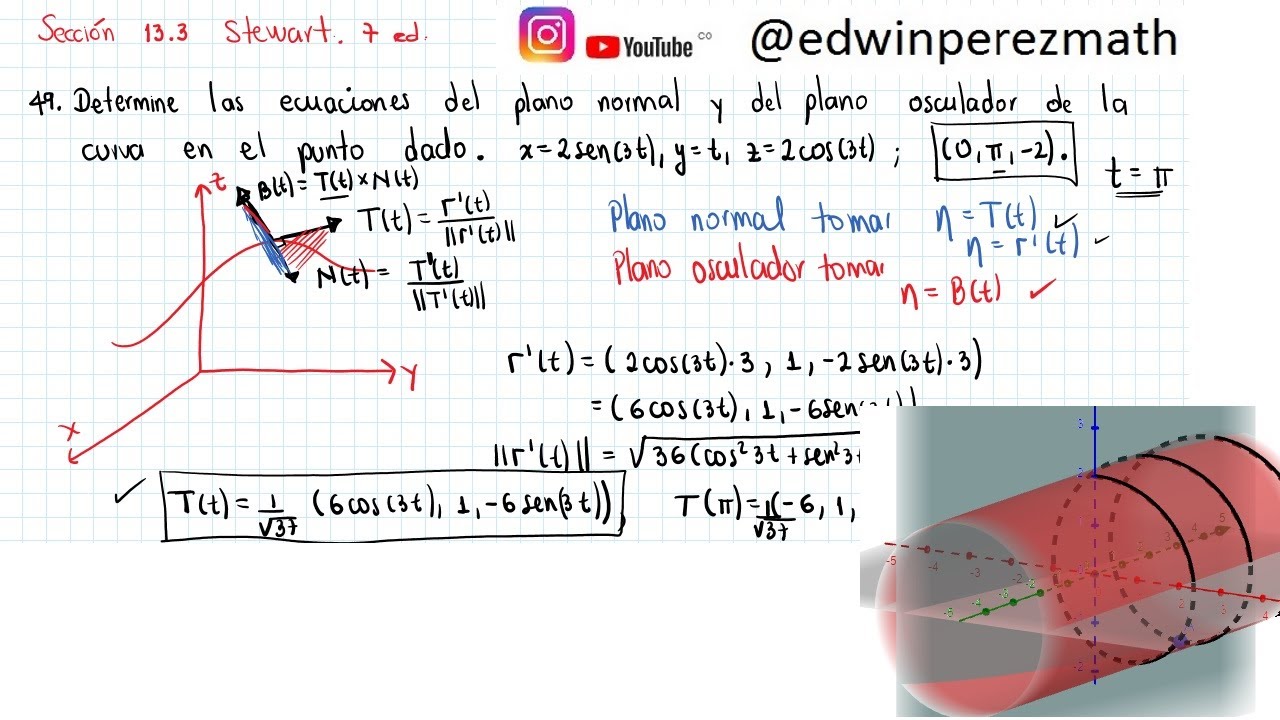 Sección 13.3 Stewart. 7 ed.
YouTube CO @edwinperezmath
49. Determine las ecuaciones del plano normal y del plano osculador de la
curva en el punto dado. x=2sen(3t), y=t, z=2cos(3t) ; (0, π, -2).
t = π
z
B(t) = T(t) × N(t)
T(t) = r'(t) / ||r'(t)||
N(t) = T'(t) / ||T'(t)||
y
x
Plano normal tomar η = T(t) ✓
η = r'(t) ✓
Plano osculador tomar
η = B(t) ✓
r'(t) = (2cos(3t)·3, 1, -2sen(3t)·3)
= (6cos(3t), 1, -6sen
||r'(t)|| = √36(cos² 3t + sen² 3t
✓ T(t) = 1/√37 (6cos(3t), 1, -6sen(3t))
T(π) = 1/√37 (-6, 1,